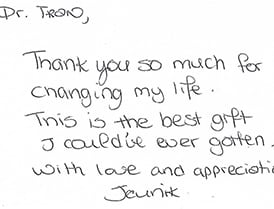 Dr. TRON,
Thank you so much for
changing my life.
This is the best gift
I could've ever gotten.
with love and appreciati